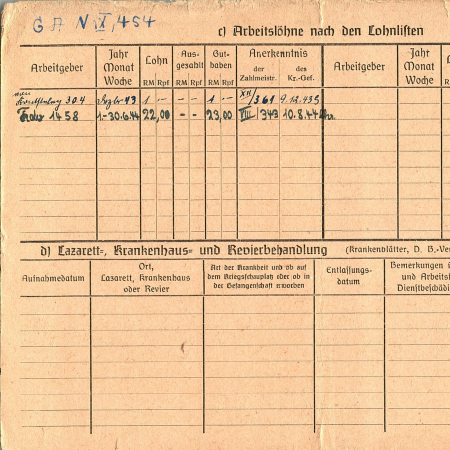 G A N X,454
c) Arbeitslöhne nach den Lohnlisten
Arbeitgeber Jahr Monat Woche Lohn RM Rpf Aus- gezahlt RM Rpf Gut- haben RM Rpf Anerkenntnis der Zahlmeistr. des Kr.-Gef. Arbeitgeber Jahr Monat Woche
304 43 1 - - - 1 - XII/361 9.12.43
1458 1.-30.6.44 22,00 - - 23,00 VIII/343 10.8.44
d) Lazarett-, Krankenhaus- und Revierbehandlung (Krankenblätter, D. B.-Ve
Aufnahmedatum Ort, Lazarett, Krankenhaus oder Revier Art der Krankheit und ob auf dem Kriegsschauplatz oder ob in der Gefangenschaft erworben Entlassungs- datum Bemerkungen ü und Arbeits Dienstbeschädi